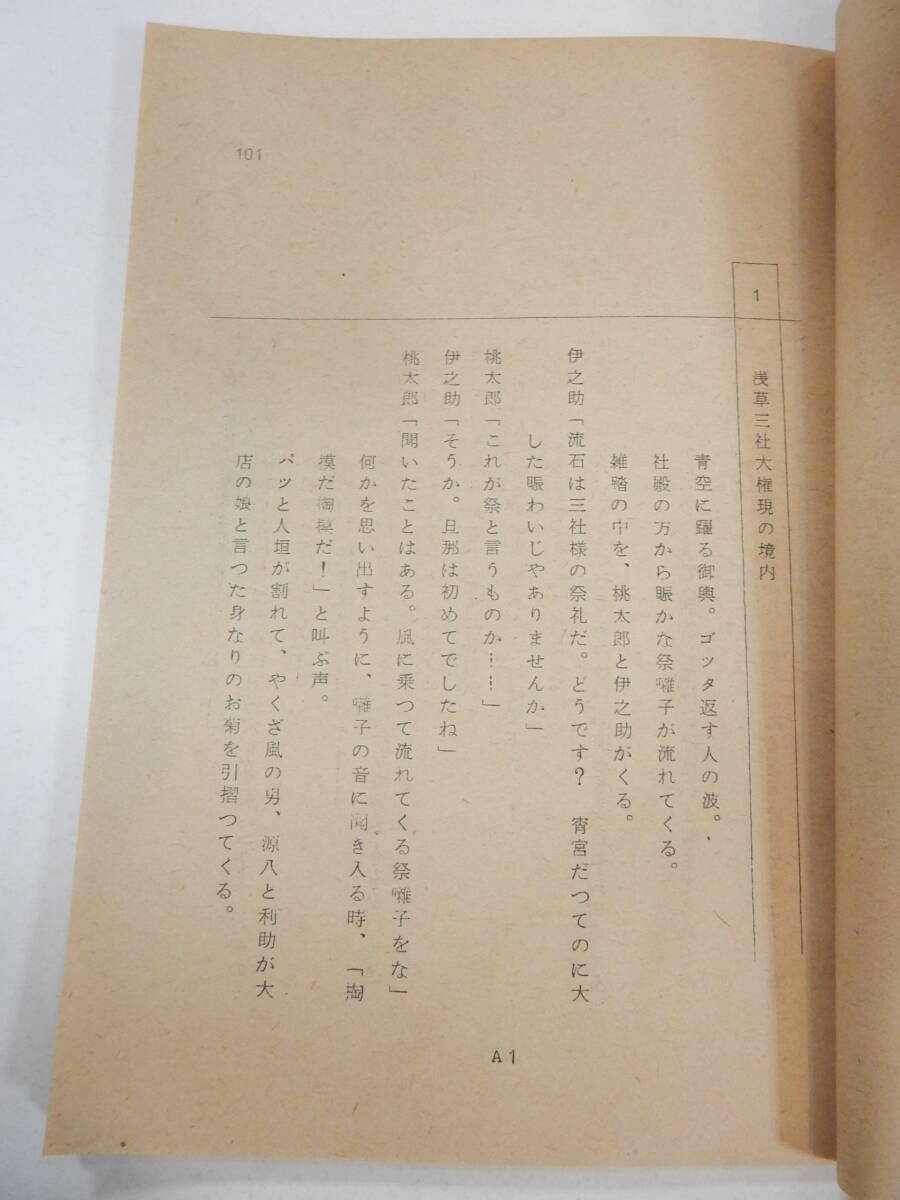 1 浅草三社大権現の境内
青空に躍る御輿。ゴッタ返す人の波。
社殿の方から賑かな祭囃子が流れてくる。
雑踏の中を、桃太郎と伊之助がくる。
伊之助「流石は三社様の祭礼だ。どうです? 宵宮だつてのに大
した賑わいじやありませんか」
桃太郎「これが祭と言うものか……」
伊之助「そうか。旦那は初めてでしたね」
桃太郎「聞いたことはある。風に乗つて流れてくる祭囃子をな」
何かを思い出すように、囃子の音に聞き入る時、「掏
摸だ掏摸だ!」と叫ぶ声。
パッと人垣が割れて、やくざ風の男、源八と利助が大
店の娘と言つた身なりのお菊を引摺つてくる。
101
A1